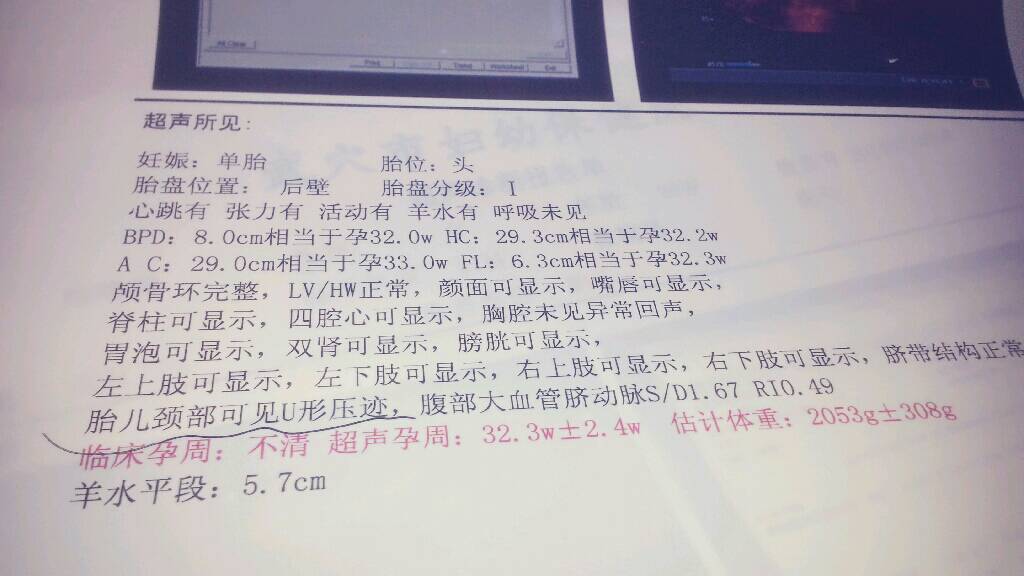 超声所见:
妊娠: 单胎 胎位: 头
胎盘位置: 后壁 胎盘分级: I
心跳有 张力有 活动有 羊水有 呼吸未见
BPD: 8.0cm相当于孕32.0w HC: 29.3cm相当于孕32.2w
A C: 29.0cm相当于孕33.0w FL: 6.3cm相当于孕32.3w
颅骨环完整, LV/HW正常, 颜面可显示, 嘴唇可显示,
脊柱可显示, 四腔心可显示, 胸腔未见异常回声,
胃泡可显示, 双肾可显示, 膀胱可显示,
左上肢可显示, 左下肢可显示, 右上肢可显示, 右下肢可显示, 脐带结构正常
胎儿颈部可见U形压迹, 腹部大血管脐动脉S/D1.67 RI0.49
临床孕周: 不清 超声孕周: 32.3w±2.4w 估计体重: 2053g±308g
羊水平段: 5.7cm